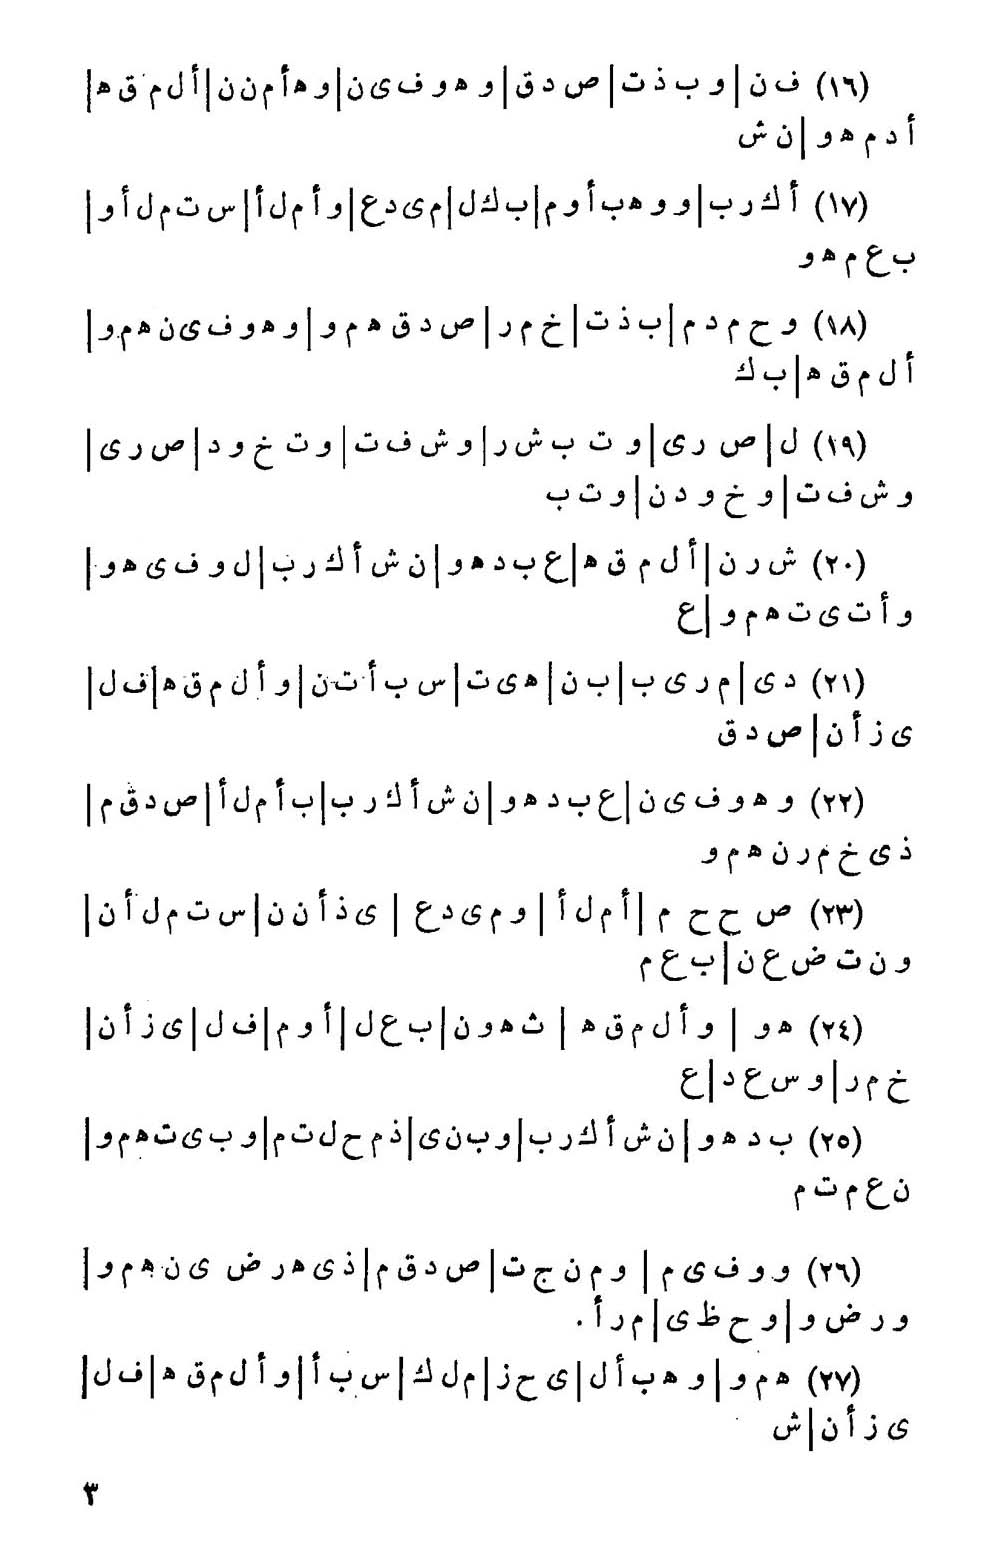 (١٦) ف ن | و ب ذ ت | ص د ق | و ه و ف ى ن | و ه أ م ن ن | أ ل م ق ه |
أ د م ه و | ن ش
(١٧) أ ك ر ب | و و ه ب أ و م | ب ك ل | م ى د ع | و أ م ل أ | س ت م ل أ و |
ب ع م ه و
(١٨) و ح م د م | ب ذ ت | خ م ر | ص د ق ه م و | و ه و ف ى ن ه م و |
أ ل م ق ه | ب ك
(١٩) ل | ص ر ى | و ت ب ش ر | و ش ف ت | و ت خ و د | ص ر ى |
و ش ف ت | و خ و د ن | و ت ب
(٢٠) ش ر ن | أ ل م ق ه | ع ب د ه و | ن ش أ ك ر ب | ل و ف ى ه و |
و أ ت ى ت ه م و | ع
(٢١) د ى | م ر ى ب | ب ن | ه ى ت | س ب أ ت ن | و أ ل م ق ه | ف ل |
ى ز أ ن | ص د ق
(٢٢) و ه و ف ى ن | ع ب د ه و | ن ش أ ك ر ب | ب أ م ل أ | ص د ق م |
ذ ى خ م ر ن ه م و
(٢٣) ص ح ح م | أ م ل أ | و م ى د ع | ى ذ أ ن ن | س ت م ل أ ن |
و ن ت ض ع ن | ب ع م
(٢٤) ه و | و أ ل م ق ه | ث ه و ن | ب ع ل | أ و م | ف ل | ى ز أ ن |
خ م ر | و س ع د | ع
(٢٥) ب د ه و | ن ش أ ك ر ب | و ب ن ى | ذ م ح ل ت م | و ب ى ت ه م و |
ن ع م ت م
(٢٦) و و ف ى م | و م ن ج ت | ص د ق م | ذ ى ه ر ض ى ن ه م و |
و ر ض و | و ح ظ ى | م ر أ .
(٢٧) ه م و | و ه ب أ ل | ى ح ز | م ل ك | س ب أ | و أ ل م ق ه | ف ل |
ى ز أ ن | ش
٣